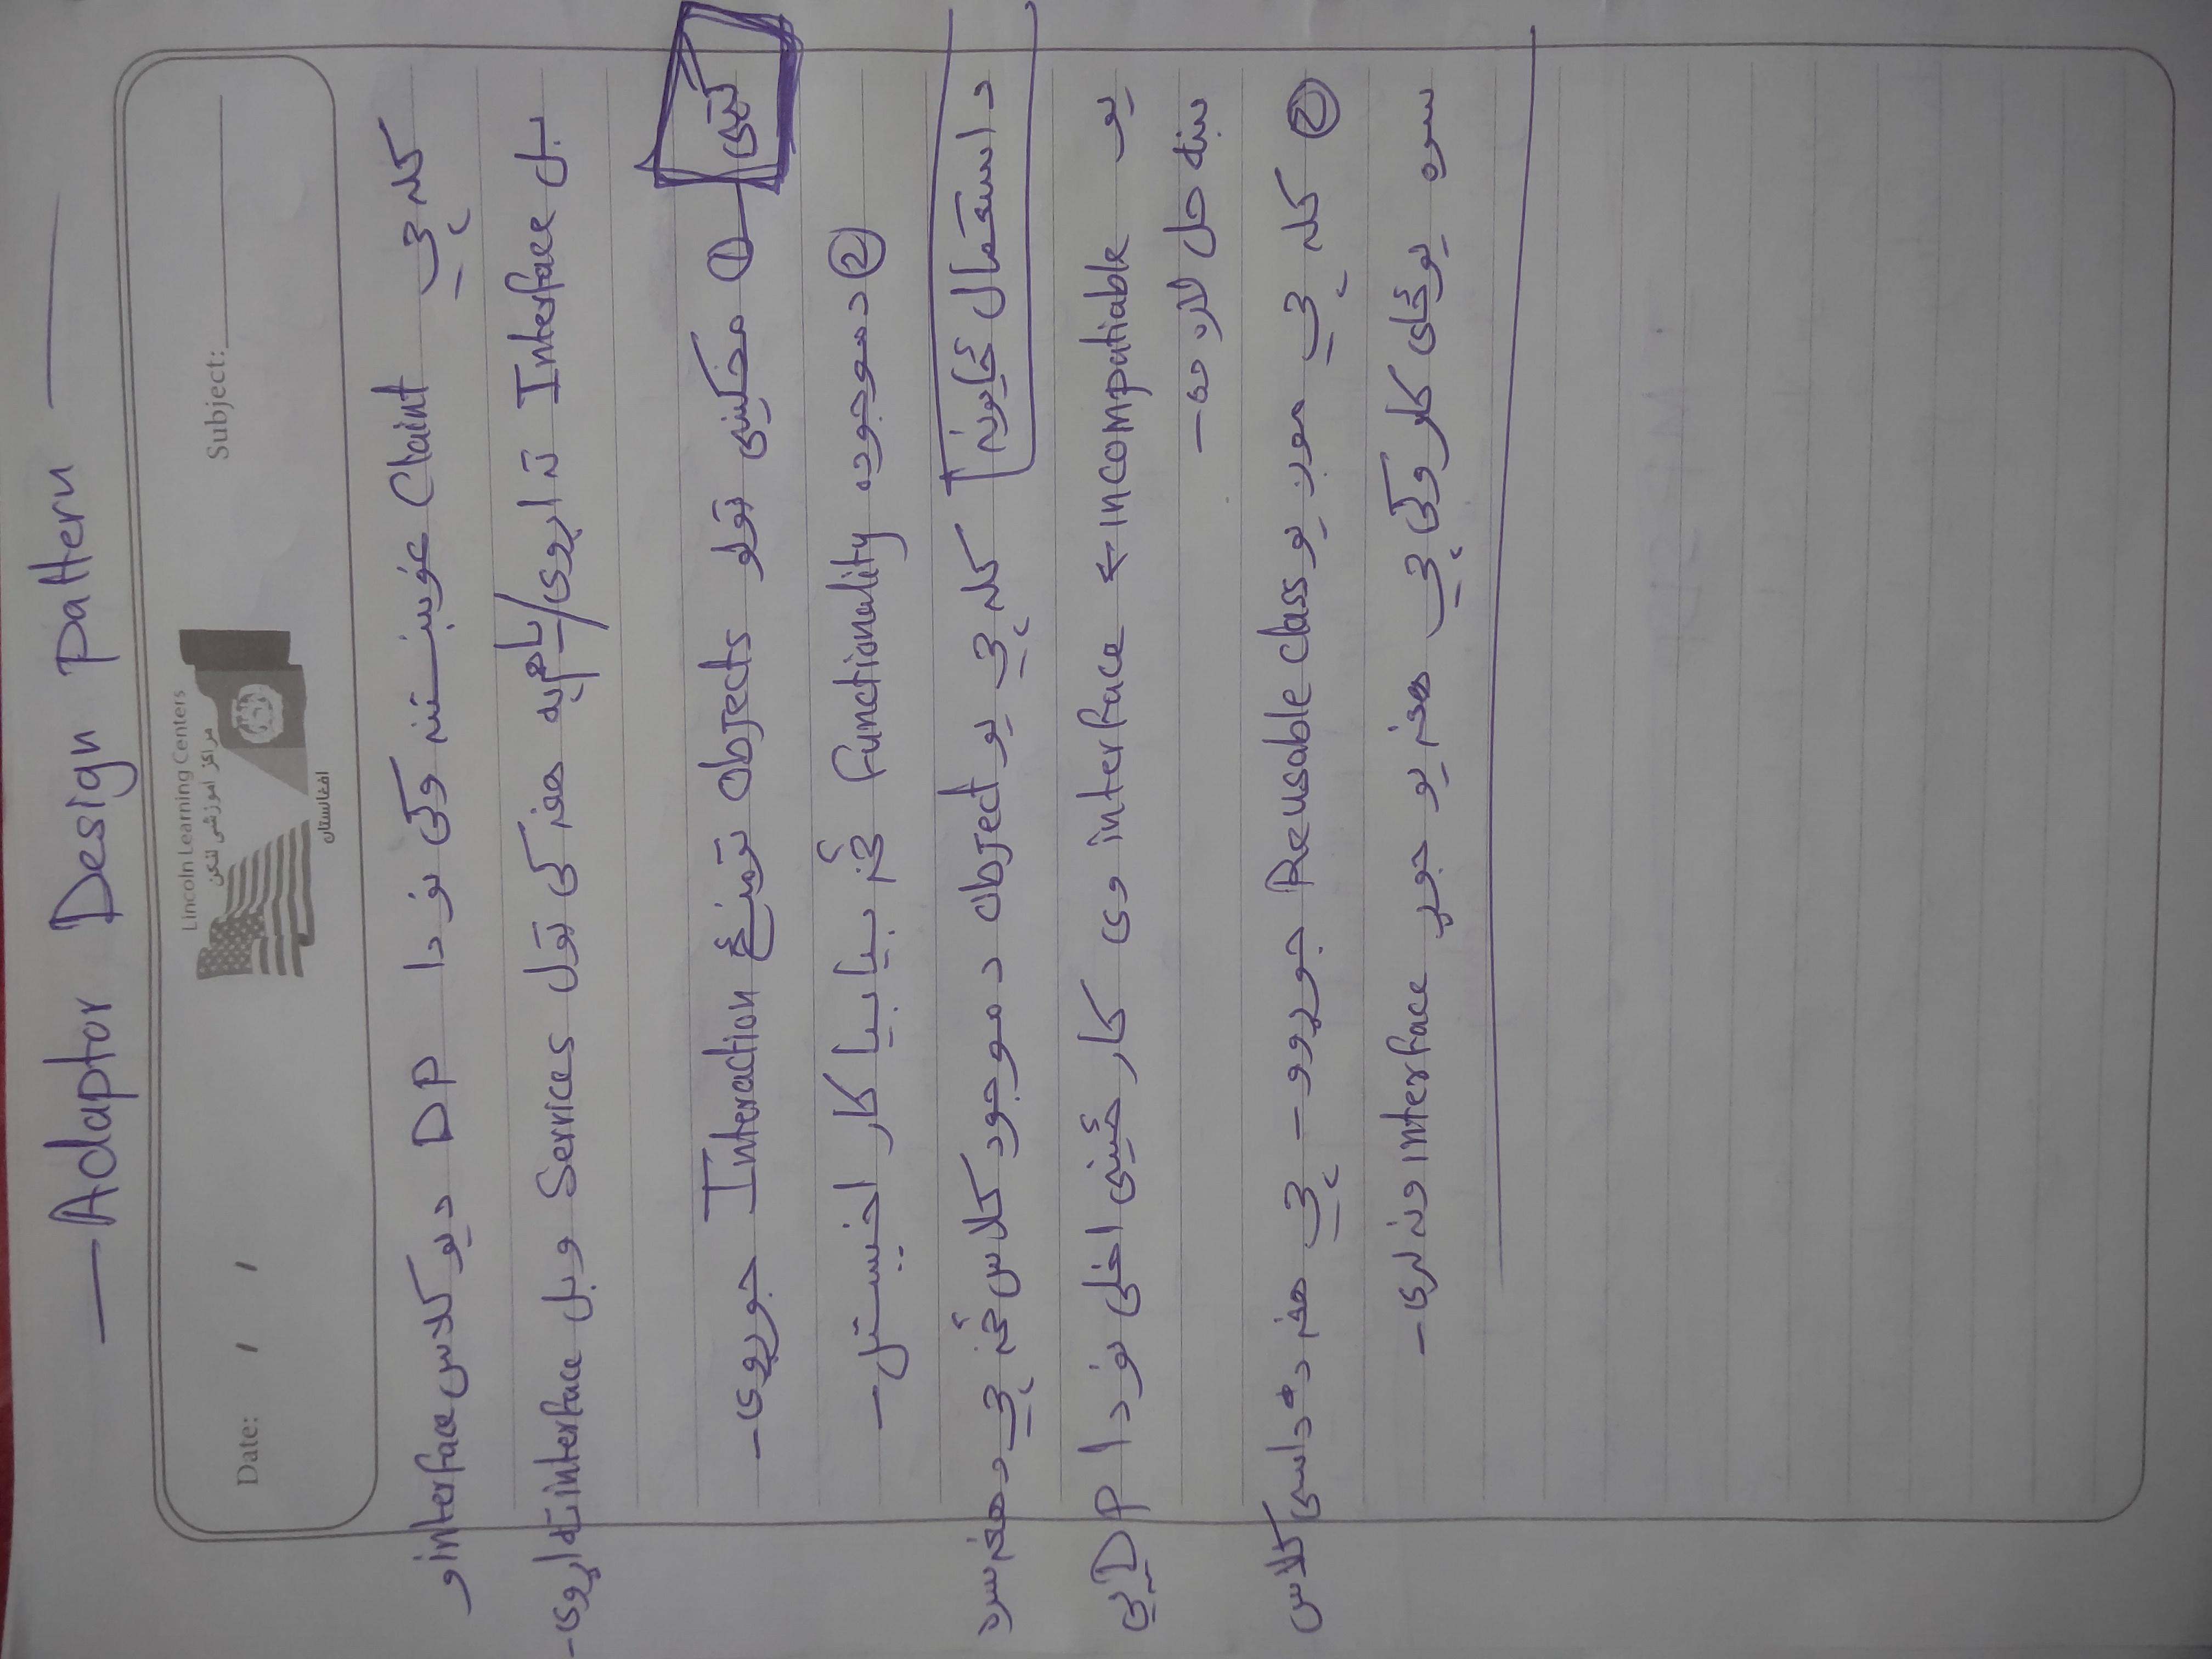 — Adaptor Design pattern —
Lincoln Learning Centers
مراكز آموزشی لنكن
Date: / /
Subject:
افغانستان
کله چې Claint غوښتنه وکی نو دا DP د یو کلاس interface و
بل Interface ته اړوی/یا هم په هغه کی ټول Services و بل interface ته اړوی-
ګټی ① مخکینی ټولو objects ترمنځ Interaction جوړوی-
② د موجوده functionality څخه بیا بیا کار اخیستل-
د استعمال ځایونه کله چې یو object د موجود کلاس څخه چې د هغه سره
یو incompatiable ← interface وی کار ځینی اخلی نو دا DP یې
ښه حل لاره ده-
② کله چې موږ یو Reusable class جوړوو- چې هغه د داسی کلاس
سره یوځای کار وکی چې هغه یو جوړ interface ونه لری-